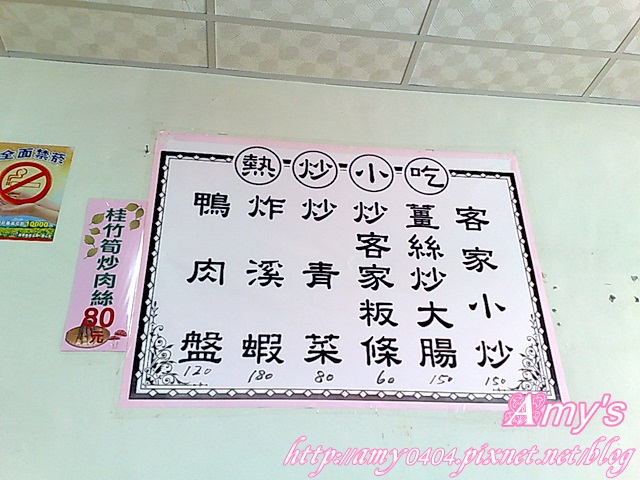 全面禁菸
桂竹筍炒肉絲
80
元
熱炒小吃
客家小炒
150
薑絲炒大腸
150
炒客家粄條
60
炒青菜
80
炸溪蝦
180
鴨肉盤
120
Amy's
http://amy0404.pixnet.net/blog